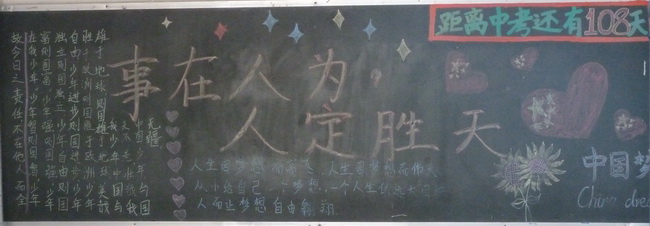 距离中考还有108天
事在人为，
人定胜天
故今日之责任不在他人而全
在我少年少年智则国智少年
富则国富少年强则国强少年
独立则国独立少年自由则国
自由少年进步则国进步少年
胜于欧洲则国胜于欧洲少年
雄于地球则国雄于地球美哉
我少年中国与
天不老壮哉我
中国少年与国
无疆
人生因梦想而
人生因梦想而伟大
从小给自己一个梦想
人
让梦想自由翱翔
中国梦
China dre